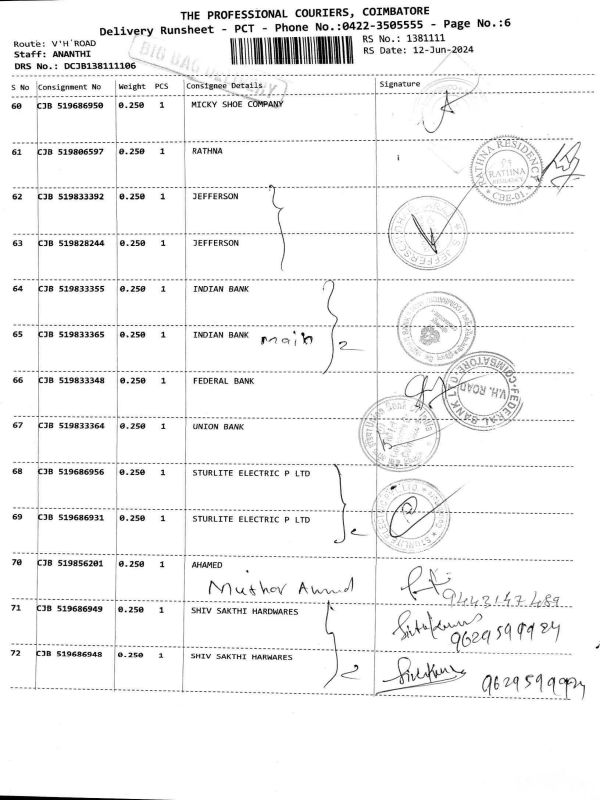 THE PROFESSIONAL COURIERS, COIMBATORE
Delivery Runsheet - PCT - Phone No.:0422-3505555 - Page No.:6
Route: V'H'ROAD
RS No.: 1381111
Staff: ANANTHI
RS Date: 12-Jun-2024
DRS No.: DCJB138111106
BIG BAG DELIVERY
S No Consignment No Weight PCS Consignee Details Signature
60 CJB 519686950 0.250 1 MICKY SHOE COMPANY
61 CJB 519806597 0.250 1 RATHNA
RATHNA RESIDENCY
RATHNA
CBE-01.
62 CJB 519833392 0.250 1 JEFFERSON
63 CJB 519828244 0.250 1 JEFFERSON
64 CJB 519833355 0.250 1 INDIAN BANK
65 CJB 519833365 0.250 1 INDIAN BANK main 2
66 CJB 519833348 0.250 1 FEDERAL BANK
FEDERAL BANK LTD
V.H. ROAD
COIMBATORE
67 CJB 519833364 0.250 1 UNION BANK
68 CJB 519686956 0.250 1 STURLITE ELECTRIC P LTD
69 CJB 519686931 0.250 1 STURLITE ELECTRIC P LTD 2
70 CJB 519856201 0.250 1 AHAMED
9443147489
71 CJB 519686949 0.250 1 SHIV SAKTHI HARDWARES
9629599924
72 CJB 519686948 0.250 1 SHIV SAKTHI HARWARES 2
9629599924